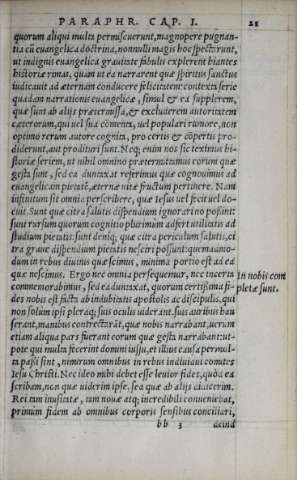 PARAPHR. CAP. I. 21
quorum aliqui multa permiscuerunt, magnopere pugnan-
tia cū euangelica doctrina, nonnulli magis hoc spectarunt,
ut indignis euangelica grauitate fabulis explerent hiantes
historiæ rimas, quam ut ea narrarent quæ spiritus sanctus
iudicauit ad æternam conducere felicitatem: contexta serie
quadam narrationis euangelicæ, simul & ea supplerem,
quæ sunt ab alijs prætermissa, & excluderem autoritatem
cæterorum, qui uel sua cōmenta, uel populari rumore, non
optimo rerum autore cognita, pro certis & cōpertis pro-
diderunt, aut prodituri sunt. Neq; enim nos sic teximus hi-
storiæ seriem, ut nihil omnino prætermittamus eorum quæ
gesta sunt, sed ea duntaxat referimus quæ cognouimus ad
euangelicam pietatē, æternæ uitæ fructum pertinere. Nam
infinitum sit omnia perscribere, quæ Iesus uel fecit uel do-
cuit. Sunt quæ citra salutis dispendium ignorari nō possint:
sunt rursum quorum cognitio plurimum adfert utilitatis ad
studium pietatis: sunt deniq; quæ citra periculum salutis, ci
tra graue dispendium pietatis nesciri possunt: quemadmo-
dum in rebus diuinis quæ scimus, minima portio est ad ea
quæ nescimus. Ergo nec omnia persequemur, nec incerta In nobis com
commemorabimus, sed ea duntaxat, quorum certissima fi- pletæ sunt.
des nobis est facta ab indubitatis apostolis ac discipulis, qui
non solum ipsi pleraq; suis oculis uiderant, suis auribus hau
serant, manibus contrectarāt, quæ nobis narrabant, uerum
etiam aliqua pars fuerant eorum quæ gesta narrabant: ut-
pote qui multa fecerint domini iussu, et illius causa permul-
ta passi sint, nimirum omnibus in rebus indiuidui comites
Iesu Christi. Nec ideo mihi debet esse leuior fides, quod ea
scribam, non quæ uiderim ipse, sed quæ ab alijs didicerim.
Rei tam inusitatæ, tam nouæ atq; incredibili conueniebat,
primum fidem ab omnibus corporis sensibus conciliari,
bb 3 deind